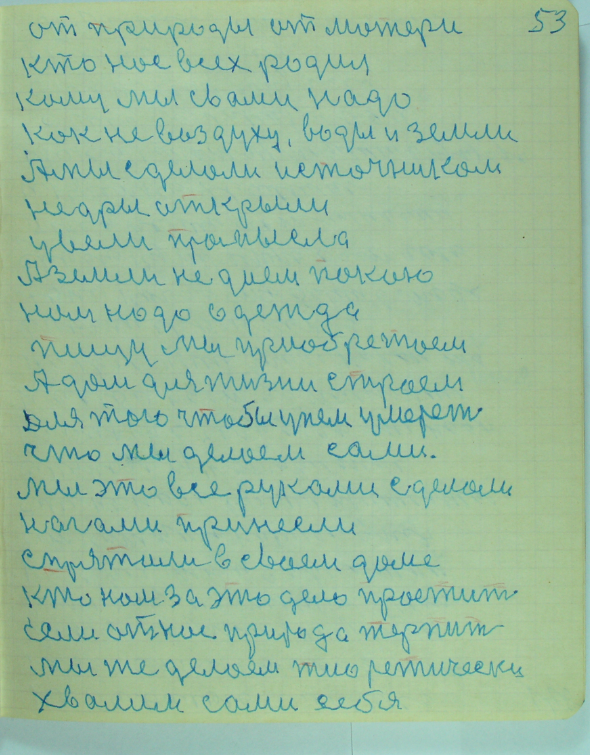 53
от природы от матери
кто нас всех родил
кому мы свами надо
как не воздуху, воды и земли
А мы сделали источником
недры открыли
увели промысла
А земли не даем покою
нам надо одежда
пищу мы приобретаем
А дом для жизни строем
для того чтобы унем умереть
что мы делаем сами.
мы это все руками сделали
нагами принесли
спрятали в своем доме
кто нам за это дело простит
если от нас природа терпит
мы же делаем тиоретически
хвалим сами себя